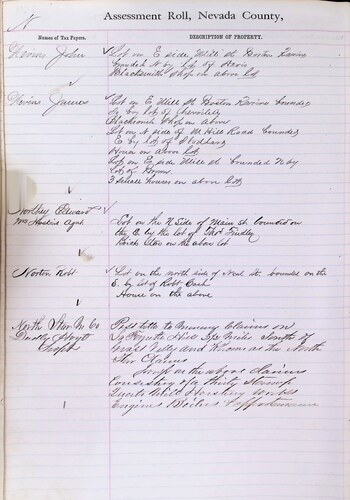 N
Assessment Roll, Nevada County,
Names of Tax Payers.
DESCRIPTION OF PROPERTY.
John
Lot on E side Mill St Boston Ravine
bounded N by Lot of
Blacksmith Shop on above lot
James
Lot on E Mill St Boston Ravine bounded
by lot of
Blacksmith Shop on above
Lot on N side of M Hill Road bounded
E by lot of Stoddard
House on above lot
Lot on E side Mill St bounded N by
Lot of
3 Small houses on above lots
Northey Edward
Wm Agent
Lot on the N Side of Main St. bounded on
the E. by the lot of Findley
Brick Store on the above lot
Norton Robt
Lot on the north side of Neal St. bounded on the
E. by lot of Robt
House on the above
North Star M Co
Supt
Poss title to Mining Claims on
La Fayette Hill Two Miles South of
Grass Valley and Known as the North
Star Claims
Imp on the above claims
Consisting of a thirty Stamp
Quartz Mill Hoisting works
Engines Boilers